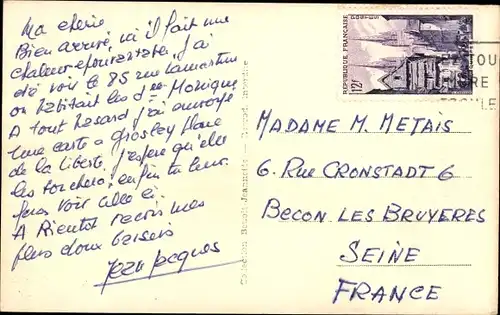 Ma cherie
Bien arrivé, ici il fait une
chaleur épouvantable, j'ai
été voir le 85 rue Lamartine
ou habitent les d Monique
A tout hasard j'ai envoyé
une carte a Grosley Place
de la Liberté, j'espère qu'elle
les touchera, enfin tu leur
feras voir celle ci
A Bientot recois mes
plus doux baisers
Jean Jacques
Collection Benoit-Jeannette
REPUBLIQUE FRANÇAISE
QUIMPER
12F
MADAME M. METAIS
6. RUE CRONSTADT 6
BECON LES BRUYERES
SEINE
FRANCE